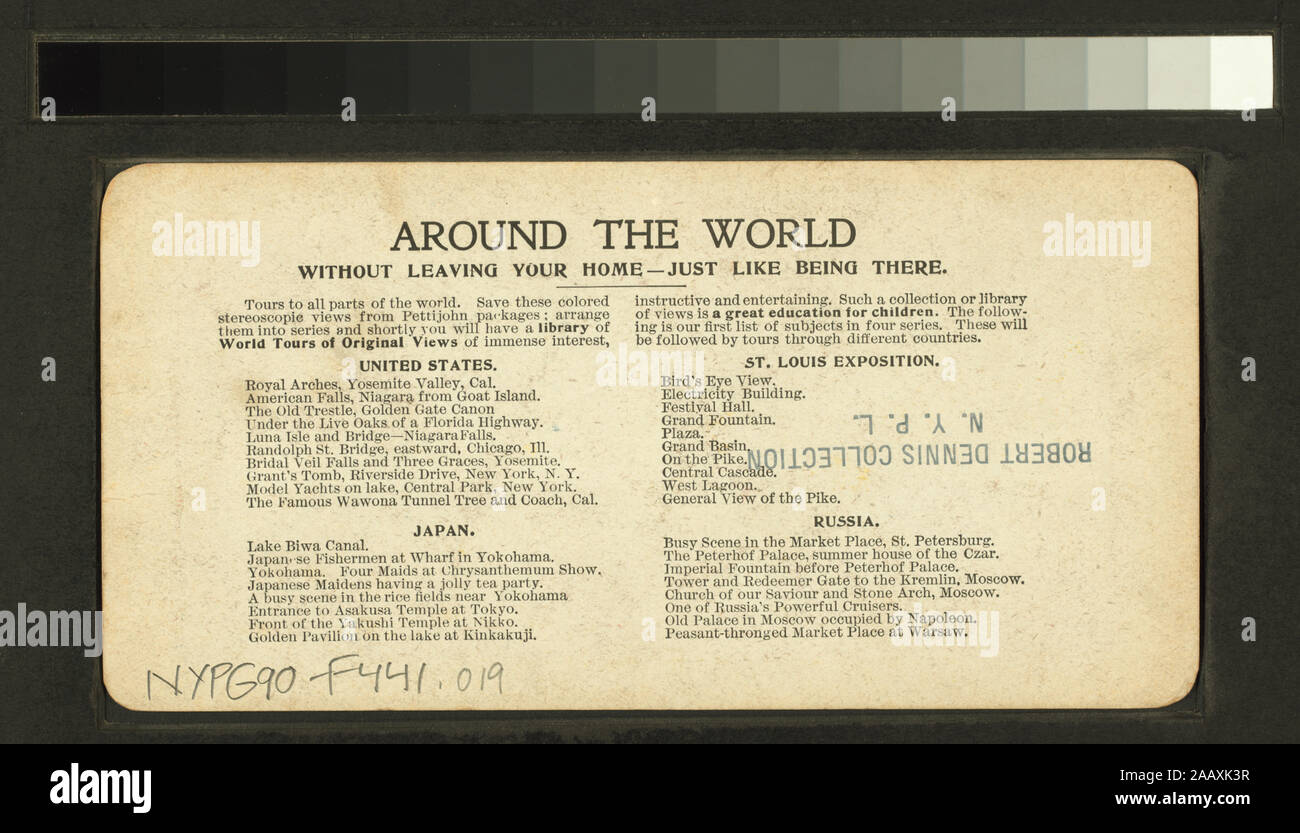 AROUND THE WORLD
WITHOUT LEAVING YOUR HOME—JUST LIKE BEING THERE.
Tours to all parts of the world. Save these colored
stereoscopic views from Pettijohn packages; arrange
them into series and shortly you will have a library of
World Tours of Original Views of immense interest,
instructive and entertaining. Such a collection or library
of views is a great education for children. The follow-
ing is our first list of subjects in four series. These will
be followed by tours through different countries.
UNITED STATES.
Royal Arches, Yosemite Valley, Cal.
American Falls, Niagara from Goat Island.
The Old Trestle, Golden Gate Canon
Under the Live Oaks of a Florida Highway.
Luna Isle and Bridge—Niagara Falls.
Randolph St. Bridge, eastward, Chicago, Ill.
Bridal Veil Falls and Three Graces, Yosemite.
Grant's Tomb, Riverside Drive, New York, N. Y.
Model Yachts on lake, Central Park, New York.
The Famous Wawona Tunnel Tree and Coach, Cal.
JAPAN.
Lake Biwa Canal.
Japanese Fishermen at Wharf in Yokohama.
Yokohama. Four Maids at Chrysanthemum Show.
Japanese Maidens having a jolly tea party.
A busy scene in the rice fields near Yokohama
Entrance to Asakusa Temple at Tokyo.
Front of the Yakushi Temple at Nikko.
Golden Pavilion on the lake at Kinkakuji.
ST. LOUIS EXPOSITION.
Bird's Eye View.
Electricity Building.
Festival Hall.
Grand Fountain.
Plaza.
Grand Basin.
On the Pike.
Central Cascade.
West Lagoon.
General View of the Pike.
RUSSIA.
Busy Scene in the Market Place, St. Petersburg.
The Peterhof Palace, summer house of the Czar.
Imperial Fountain before Peterhof Palace.
Tower and Redeemer Gate to the Kremlin, Moscow.
Church of our Saviour and Stone Arch, Moscow.
One of Russia's Powerful Cruisers.
Old Palace in Moscow occupied by Napoleon.
Peasant-thronged Market Place at Warsaw.
ROBERT DENNIS COLLECTION
N. Y. P. L.
NYPG90-F441.019
alamy
alamy
alamy
alamy
a
a
a
a
a
a
a
a
a
a
alamy
Image ID: 2AAXK3R
www.alamy.com